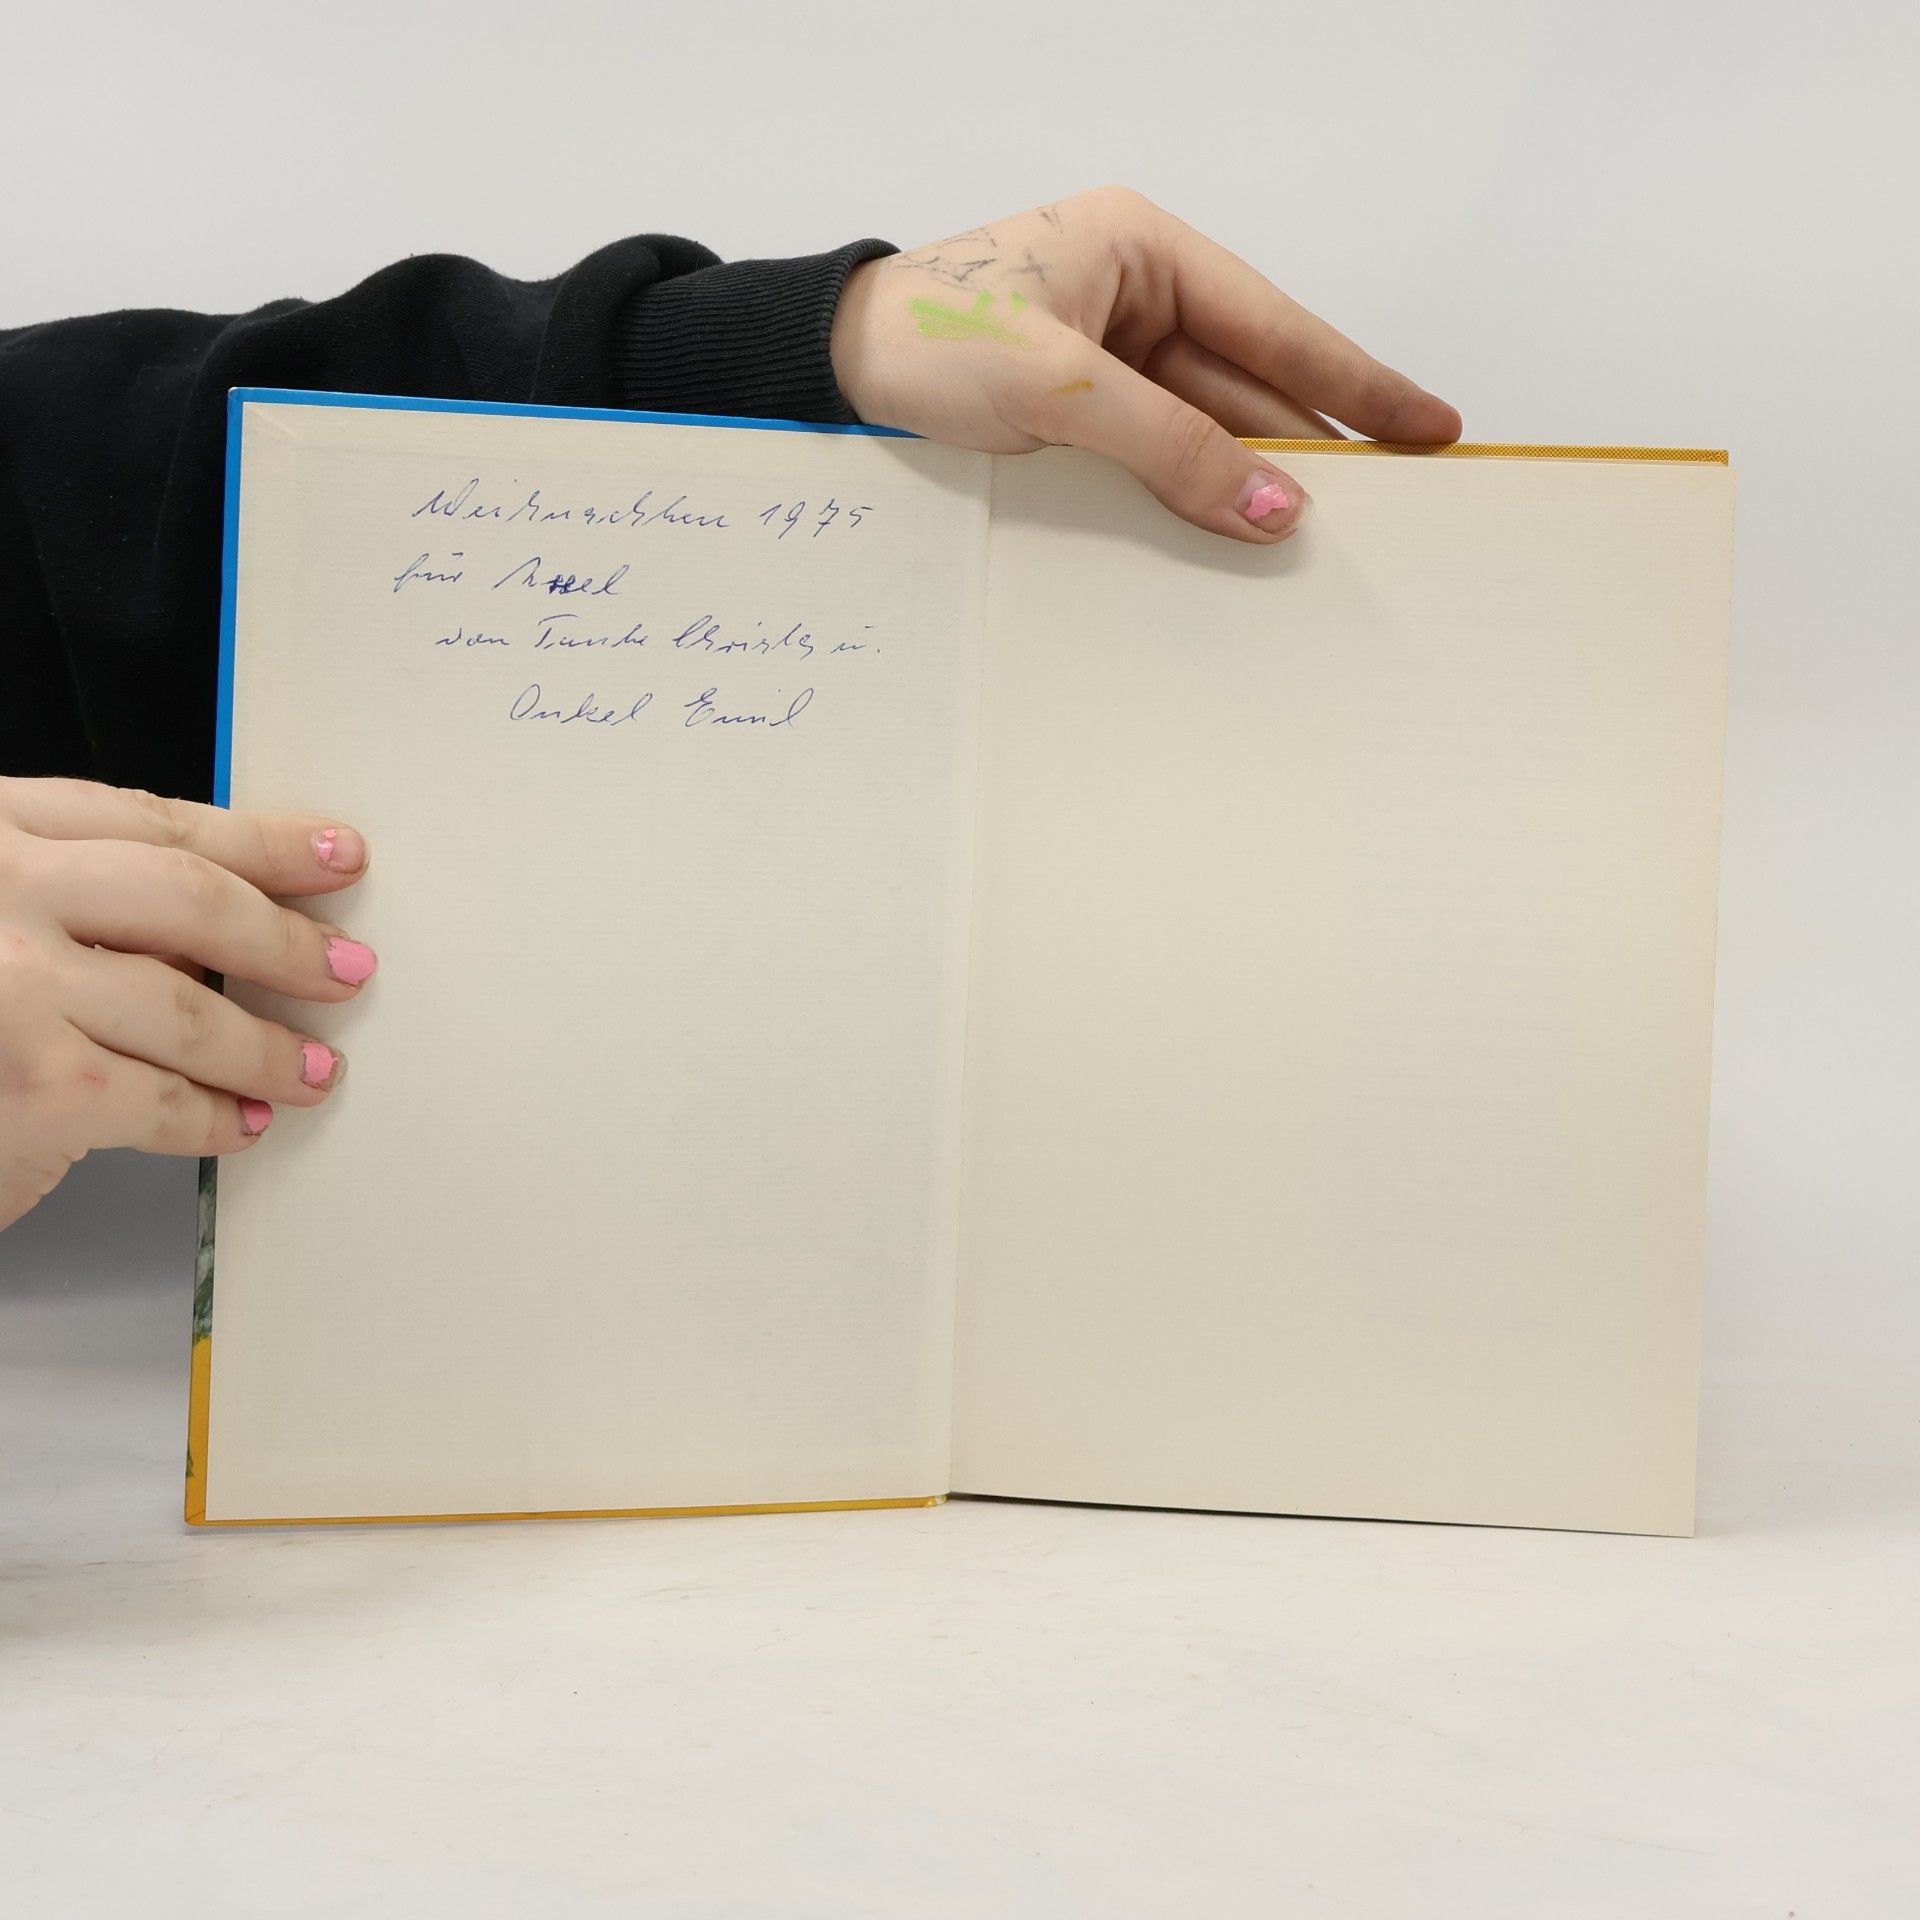 Weihnachten 1975
für Axel
von Tante Christa u.
Onkel Emil